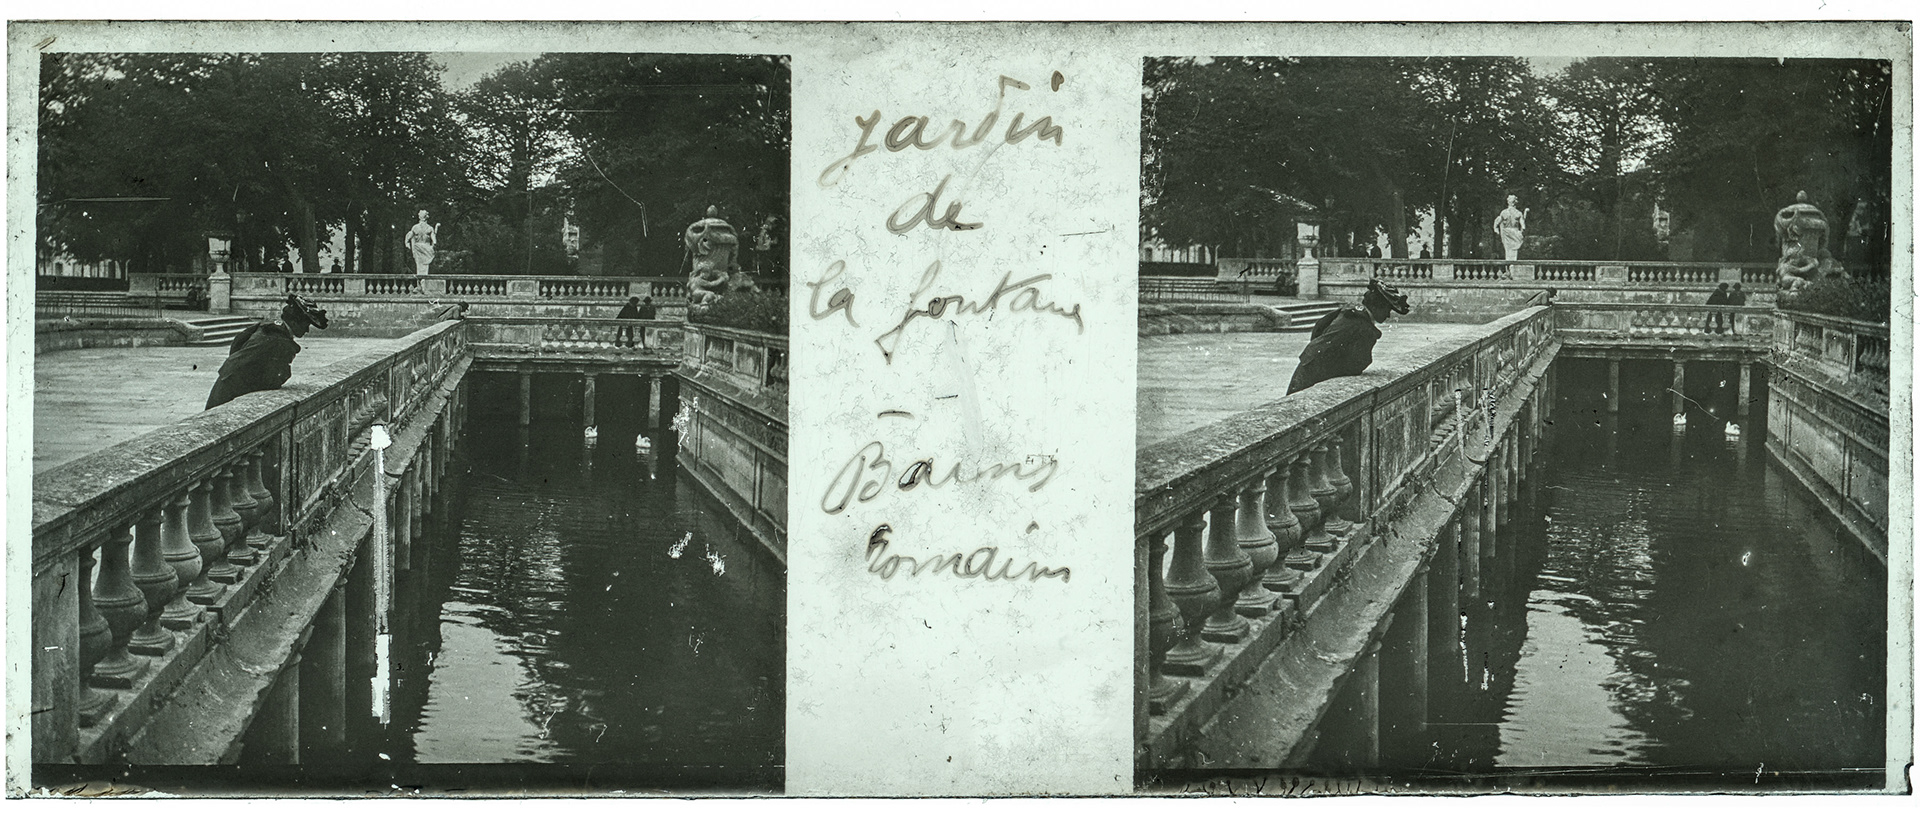 Jardin
de
la fontaine
—
Bains
Romains